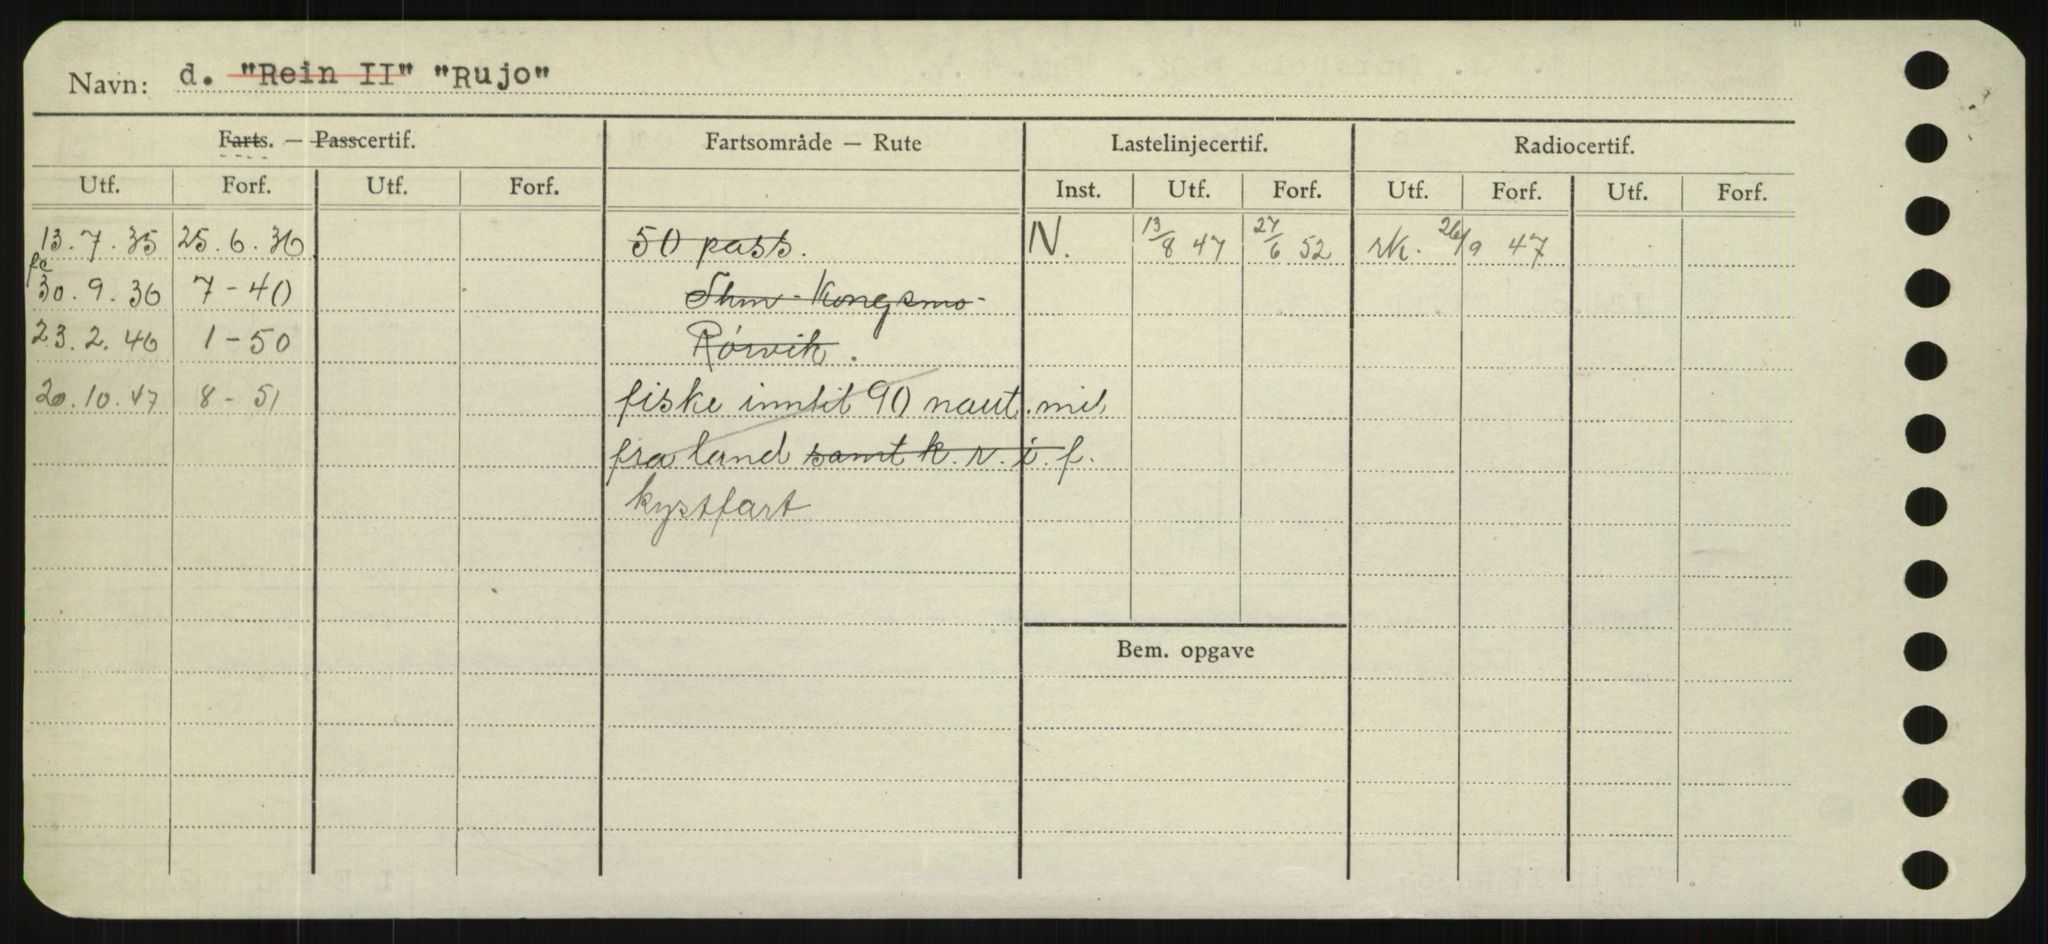 Navn: d. "Rein II" "Rujo"
Farts. — Passcertif. Fartsområde — Rute Lastelinjecertif. Radiocertif.
Utf. Forf. Utf. Forf. Inst. Utf. Forf. Utf. Forf. Utf. Forf.
13.7.35 25.6.36 50 pass. N. 13/8 47 27/6 52 rk. 26/9 47
fc
30.9.36 7-40 Shm-Kongsmo-
23.2.46 1-50 Rörvik.
20.10.47 8-51 fiske inntil 90 naut.mil
fra land samt k.r.i.f.
kystfart
Bem. opgave